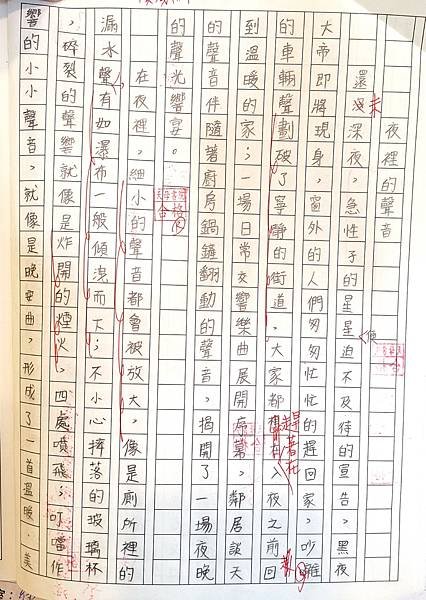 夜裡的聲音
還沒深夜,急性子的星星迫不及待的宣告,黑夜
大帝即將現身,窗外的人們匆匆忙忙的趕回家,吵雜
的車輛聲劃破了寧靜的街道。大家都想在入夜之前回
到溫暖的家;一場日常交響樂曲展開序幕。鄰居談天
的聲音伴隨著廚房鍋鏟翻動的聲音,揭開了一場夜晚
的聲光響宴。
在夜裡,細小的聲音都會被放大,像是廁所裡的
漏水聲,有如瀑布一般傾洩而下;不小心摔落的玻璃杯
,碎裂的聲響就像是炸開的煙火,四處噴飛;叮噹作
響的小小聲音,就像是晚安曲,形成了一首溫暖、美
未
趕著在
合格